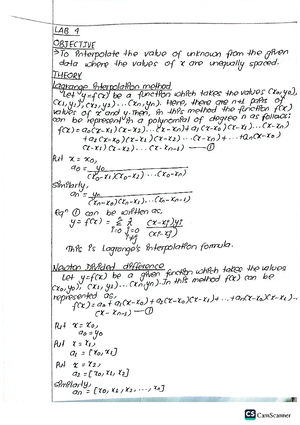 LAB 4
OBJECTIVE
→ To interpolate the value of unknown from the given
data where the values of x are unequally spaced.
THEORY
Lagrange interpolation method
Let y=f(x) be a function which takes the values (x0,y0),
(x1,y1), (x2,y2) ... (xn,yn). Here, there are n+1 pairs of
values of x and y. Then, in this method the function f(x)
can be represent in a polynomial of degree n as follows:
f(x) = a0(x-x1)(x-x2)...(x-xn)+a1(x-x0)(x-x2)...(x-xn)
+a2(x-x0)(x-x1)(x-x3)...(x-xn)+...+an(x-x0)
(x-x1)(x-x2)...(x-xn-1) — ①
Put x = x0,
a0 = y0
(x0-x1)(x0-x2)...(x0-xn)
Similarly,
an = yn
(xn-x0)(xn-x1)...(xn-xn-1)
Eqn ① can be written as,
y = f(x) = n Σ i=0 n π j=0 i≠j (x-xj)yi
(xi-xj)
This is Lagrange's interpolation formula.
Newton Divided difference
Let y=f(x) be a given function which takes the values
(x0,y0), (x1,y1)...(xn,yn). In this method f(x) can be
represented as,
f(x) = a0+a1(x-x0)+a2(x-x0)(x-x1)+...+an(x-x0)(x-x1)...
(x-xn-1) — ①
Put x = x0,
a0 = y0
Put x = x1,
a1 = [x0,x1]
Put x = x2,
a2 = [x0,x1,x2]
Similarly,
an = [x0,x1,x2,...,xn]
CS CamScanner